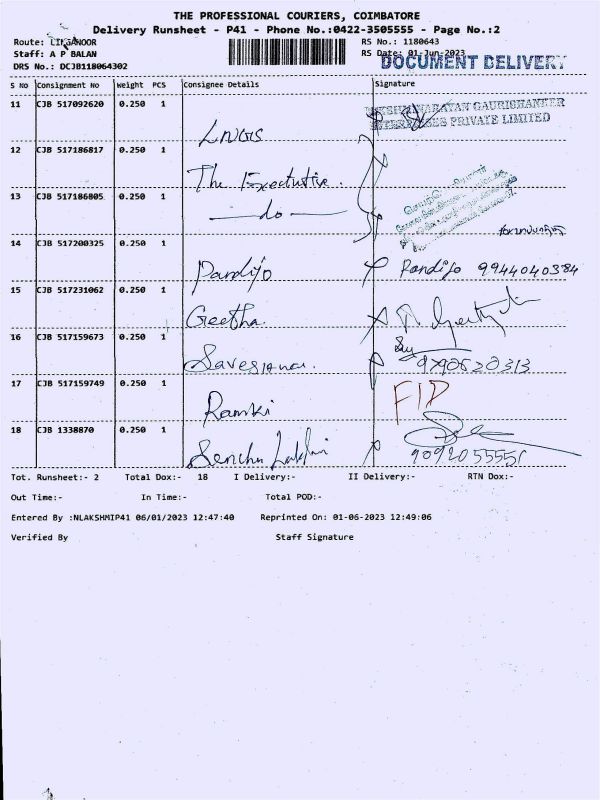 THE PROFESSIONAL COURIERS, COIMBATORE
Delivery Runsheet - P41 - Phone No.:0422-3505555 - Page No.:2
Route: LINGANOOR
RS No.: 1180643
Staff: A P BALAN
RS Date: 01-Jun-2023
DRS No.: DCJB118064302
DOCUMENT DELIVERY
S No Consignment No Weight PCS Consignee Details Signature
11 CJB 517092620 0.250 1 LNGS
GAURISHANKER
PRIVATE LIMITED
12 CJB 517186817 0.250 1 The Executive.
13 CJB 517186805 0.250 1 — do —
14 CJB 517200325 0.250 1 Pandijo Pandijo 9944040384
15 CJB 517231062 0.250 1 Geetha.
16 CJB 517159673 0.250 1 9790520313
17 CJB 517159749 0.250 1 Ramki FID
18 CJB 1338870 0.250 1 9092055551
Tot. Runsheet:- 2 Total Dox:- 18 I Delivery:- II Delivery:- RTN Dox:-
Out Time:- In Time:- Total POD:-
Entered By :NLAKSHMIP41 06/01/2023 12:47:40 Reprinted On: 01-06-2023 12:49:06
Verified By Staff Signature